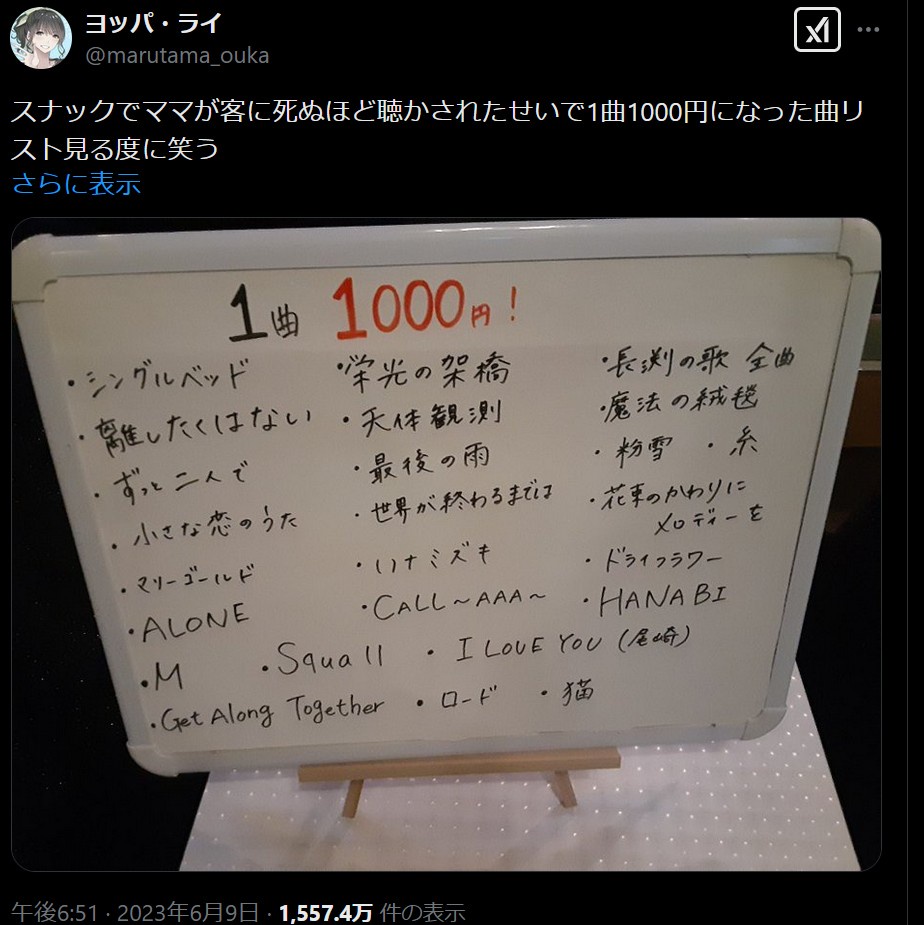 ヨッパ・ライ
@marutama_ouka
スナックでママが客に死ぬほど聴かされたせいで1曲1000円になった曲リ
スト見る度に笑う
さらに表示
1曲 1000円!
・シングルベッド ・栄光の架橋 ・長渕の歌 全曲
・離したくはない ・天体観測 ・魔法の絨毯
・ずっと二人で ・最後の雨 ・粉雪 ・糸
・小さな恋のうた ・世界が終わるまでは ・花束のかわりに
メロディーを
・マリーゴールド ・ハナミズキ ・ドライフラワー
・ALONE ・CALL～AAA～ ・HANABI
・M ・Squall ・I LOVE YOU (尾崎)
・Get Along Together ・ロード ・猫
午後6:51 · 2023年6月9日 · 1,557.4万 件の表示